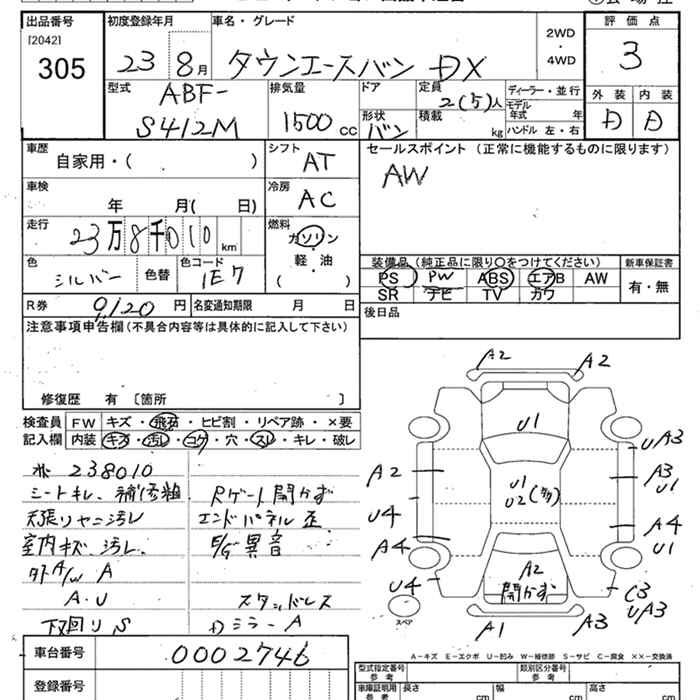 出品番号
[2042]
305
初度登録年月
23 8月
車名・グレード
タウンエースバン DX
2WD
・
4WD
評価点
3
外装 内装
D D
型式
ABF-
S412M
排気量
1500 cc
ドア
形状
バン
定員
2(5)人
積載
kg
ディーラー・並行
モデル
年式 年
ハンドル 左・右
車歴
自家用・( )
シフト
AT
車検
年 月( 日)
冷房
AC
走行
23万8千010 km
燃料
ガソリン
軽・油
( )
色
シルバー
色替
色コード
1E7
R券
9,120 円
名変通知期限 月 日
セールスポイント (正常に機能するものに限ります)
AW
装備品 (純正品に限り〇をつけてください)
PS PW ABS エアB AW
SR ナビ TV カワ
新車保証書
有・無
後日品
注意事項申告欄(不具合内容等は具体的に記入して下さい)
修復歴 有 〔箇所 〕
検査員
記入欄
FW キズ・飛石・ヒビ割・リペア跡・×要
内装 キズ・汚レ・コゲ・穴・スレ・キレ・破レ
238010
シートキレ、補修粗
天張リヤニ汚レ
室内キズ、汚レ、
タイヤ/W A
A・U
下廻リ S
Rゲート開かず
エンドパネル歪
E/G異音
スタッドレス
Dミラー A
車台番号
0002746
登録番号
A2 A2
U1
UA3
A2
A3
U1
U1
U2(多)
U4
A4
A4
U1
U4
A2
開かず
C3
UA3
A1 A3
スペア
A-キズ E-エクボ U-凹み W-補修跡 S-サビ C-腐食 XX-交換済
型式指定番号
参考
類別区分番号
参考
車庫証明用
参考
長さ cm
幅 cm
高さ cm